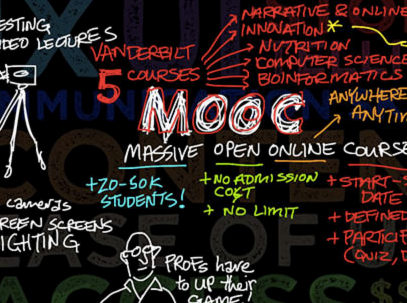 ESTING
DEO LECTURES
VANDERBILT
5 COURSES
NARRATIVE & ONLINE
INNOVATION *
NUTRITION
COMPUTER SCIENCE
BIOINFORMATICS
MOOC
ANYWHERE
ANYTIM
MASSIVE OPEN ONLINE COURSE
+20-50K
STUDENTS!
+ NO ADMISSION
COST
+ NO LIMIT
+ START-
DATE
+ DEFINED
+ PARTICI
(QUIZ, D
cameras
REEN SCREENS
IGHTING
PROFS have
to UP their
GAME!